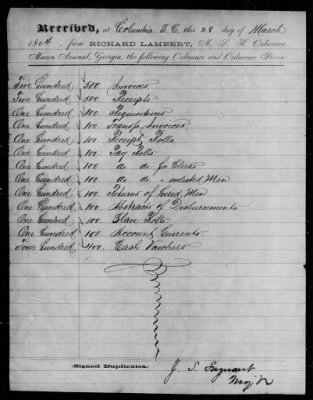 Received, at Columbia, S.C. this 28 day of March
1864, from RICHARD LAMBERT, M. S. K. Ordnance,
Macon Arsenal, Georgia, the following Ordnance and Ordnance Stores:
Five Hundred 500 Invoices
Five Hundred 500 Receipts
One Hundred 100 Requisitions
One Hundred 100 Transfer Invoices
One Hundred 100 Receipt Rolls
One Hundred 100 Pay Rolls
One Hundred 100 do do for Clerks
One Hundred 100 do do Enlisted Men
One Hundred 100 Returns of Hired Men
One Hundred 100 Abstracts of Disbursements
One Hundred 100 Slave Rolls
One Hundred 100 Account Currents
Four Hundred 400 Cash Vouchers
Signed Duplicates.
J. S.
Maj